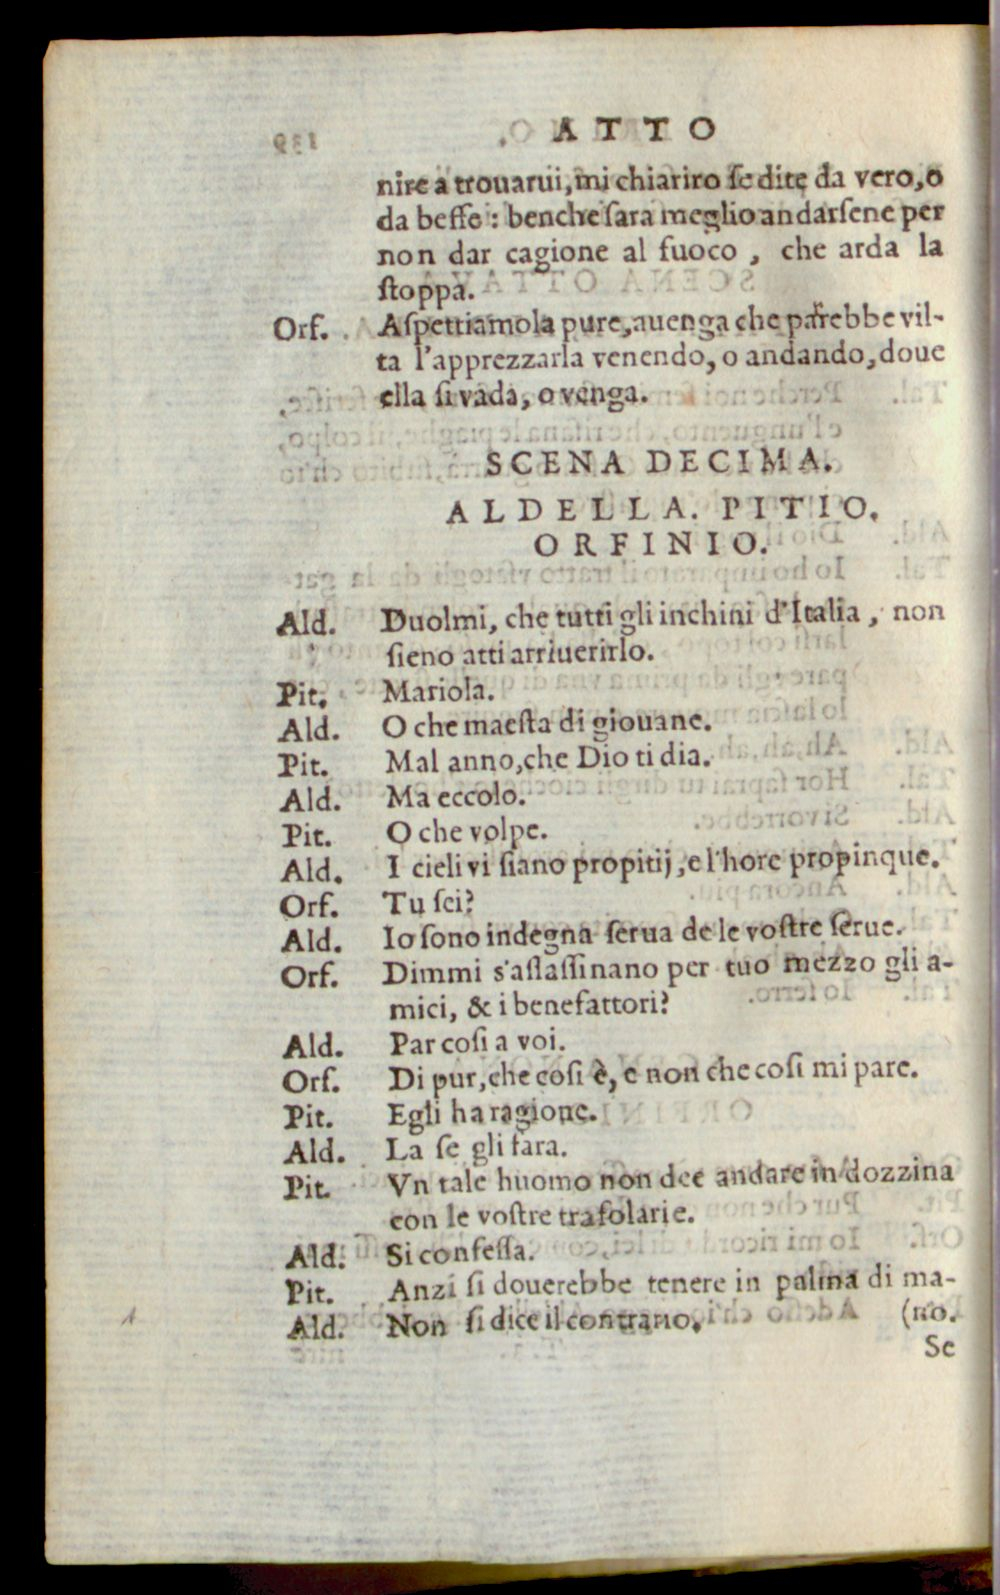 ATTO
nire a trouarui, mi chiariro ſe dite da vero, o
da beffe : benche ſara meglio andarſene per
non dar cagione al fuoco , che arda la
ſtoppa.
Orf. Aſpettiamola pure, auenga che parrebbe vil-
ta l'apprezzarla venendo, o andando, doue
ella ſi vada, o venga.
SCENA DECIMA.
ALDELLA. PITIO.
ORFINIO.
Ald. Duolmi, che tutti gli inchini d'Italia , non
ſieno atti arriuerirlo.
Pit. Mariola.
Ald. O che maeſta di giouane.
Pit. Mal anno, che Dio ti dia.
Ald. Ma eccolo.
Pit. O che volpe.
Ald. I cieli vi ſiano propitij, e l'hore propinque.
Orf. Tu ſei?
Ald. Io ſono indegna ſerua de le voſtre ſerue.
Orf. Dimmi s'aſſaſſinano per tuo mezzo gli a-
mici, & i benefattori?
Ald. Par coſi a voi.
Orf. Di pur, che coſi è, e non che coſi mi pare.
Pit. Egli ha ragione.
Ald. La ſe gli fara.
Pit. Vn tale huomo non dee andare in dozzina
con le voſtre trafolarie.
Ald. Si confeſſa.
Pit. Anzi ſi douerebbe tenere in palma di ma-
Ald. Non ſi dice il contrario. (no.
Se